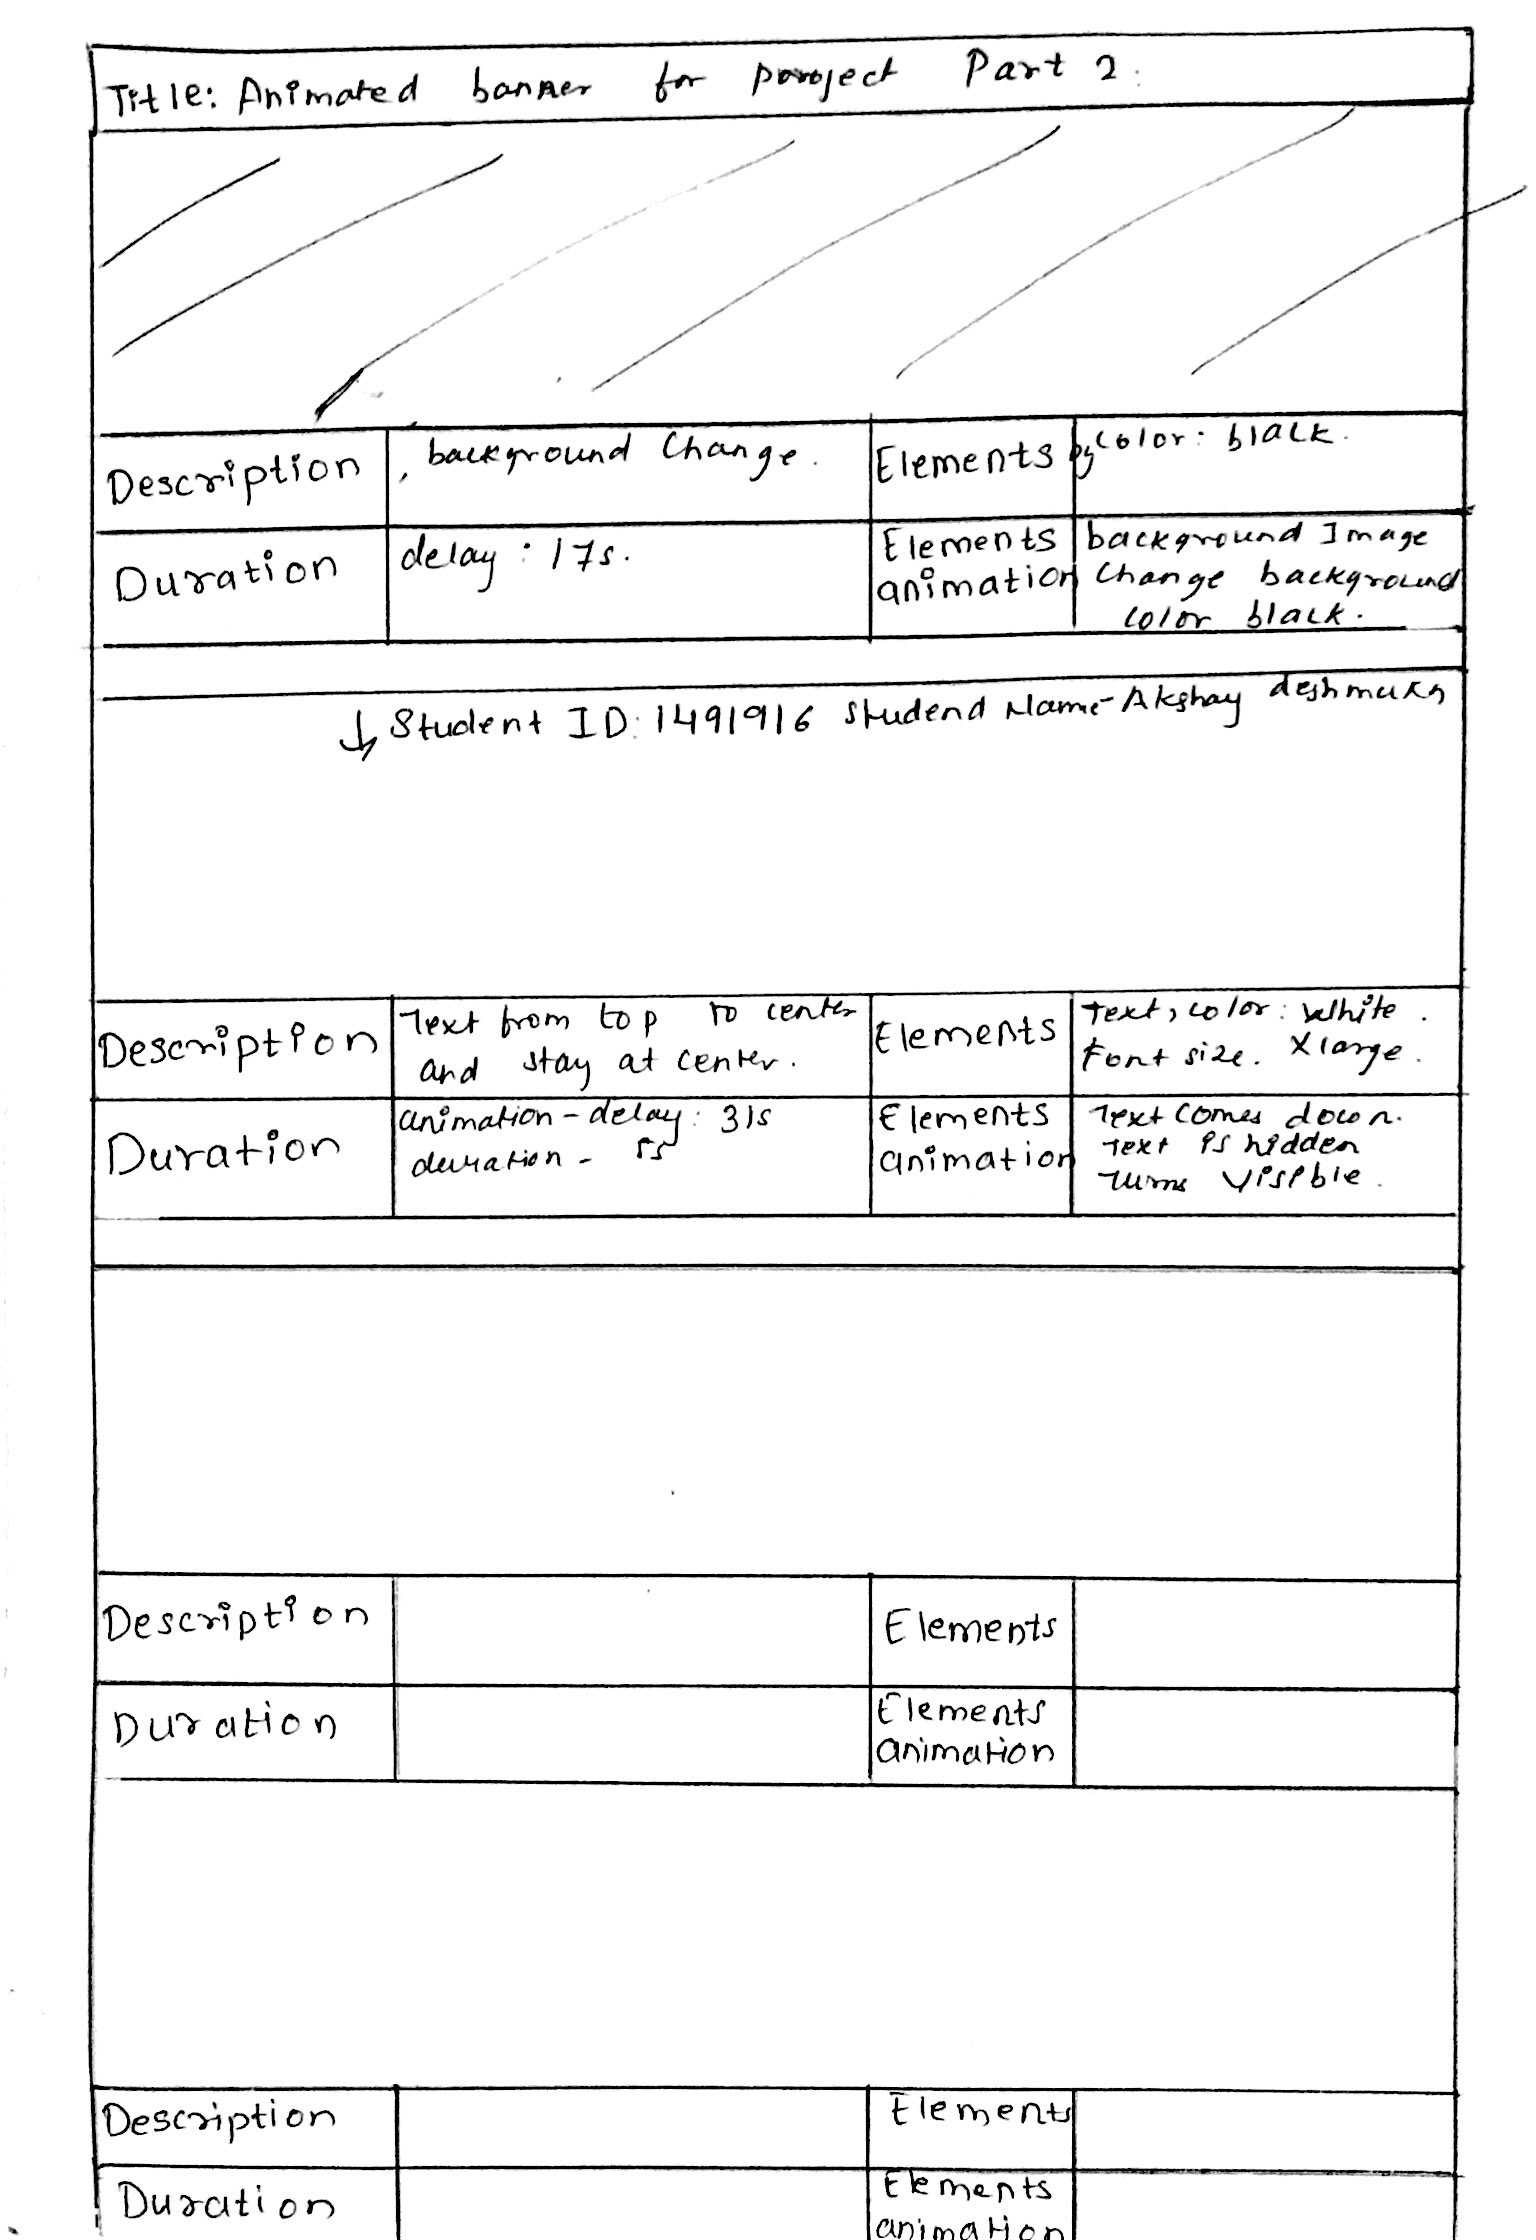 Title: Animated banner for poroject Part 2.
Description , background Change. Elements bgcolor: black.
Duration delay : 17s. Elements animation background Image
Change background
color black.
Student ID: 1491916 Studend Name-Akshay deshmukh
Description Text from top to center Elements Text, color: White.
and stay at center. Font size. Xlarge.
Duration animation-delay: 31s Elements Text comes down.
duration - 5s animation Text is hidden
Turns visible.
Description Elements
Duration Elements
animation
Description Elements
Duration Elements
animation